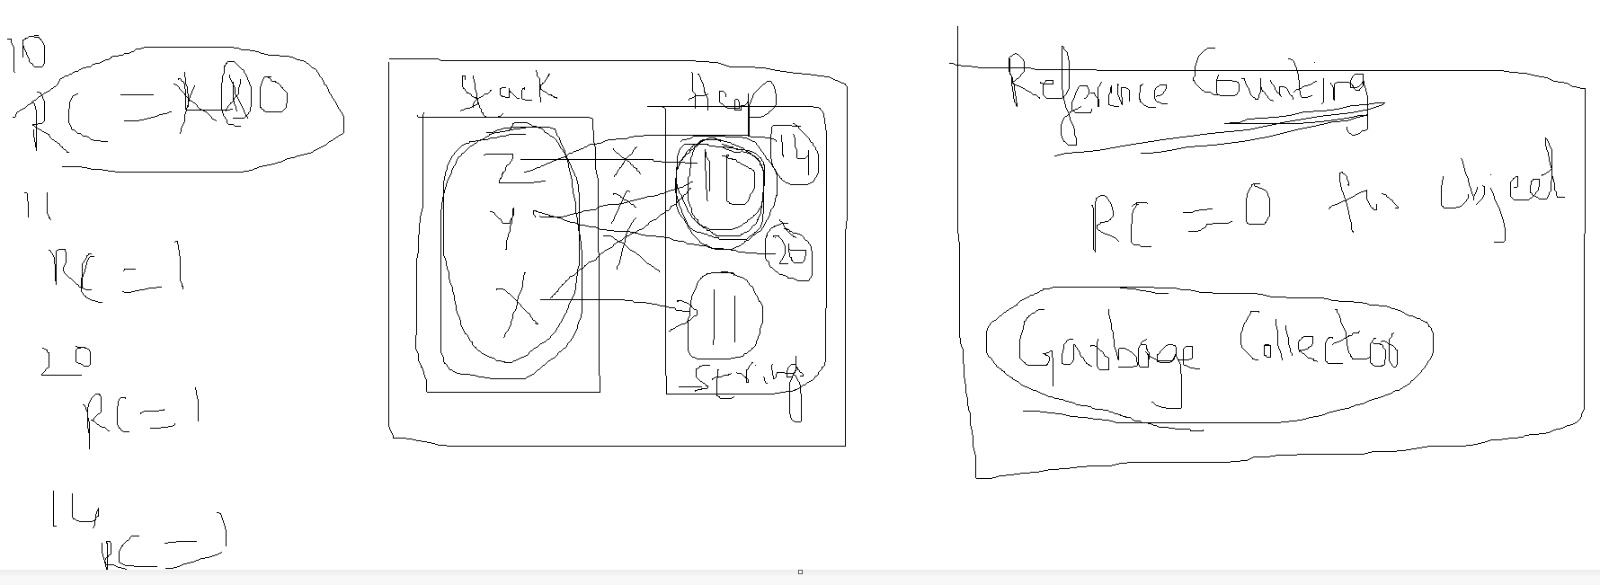 10
RC = 0
11
RC = 1
20
RC = 1
14
RC = 1
Stack
Heap
Z
Y
X
X
X
X
10
14
20
11
String
Reference Counting
RC = 0 for object
Garbage Collector